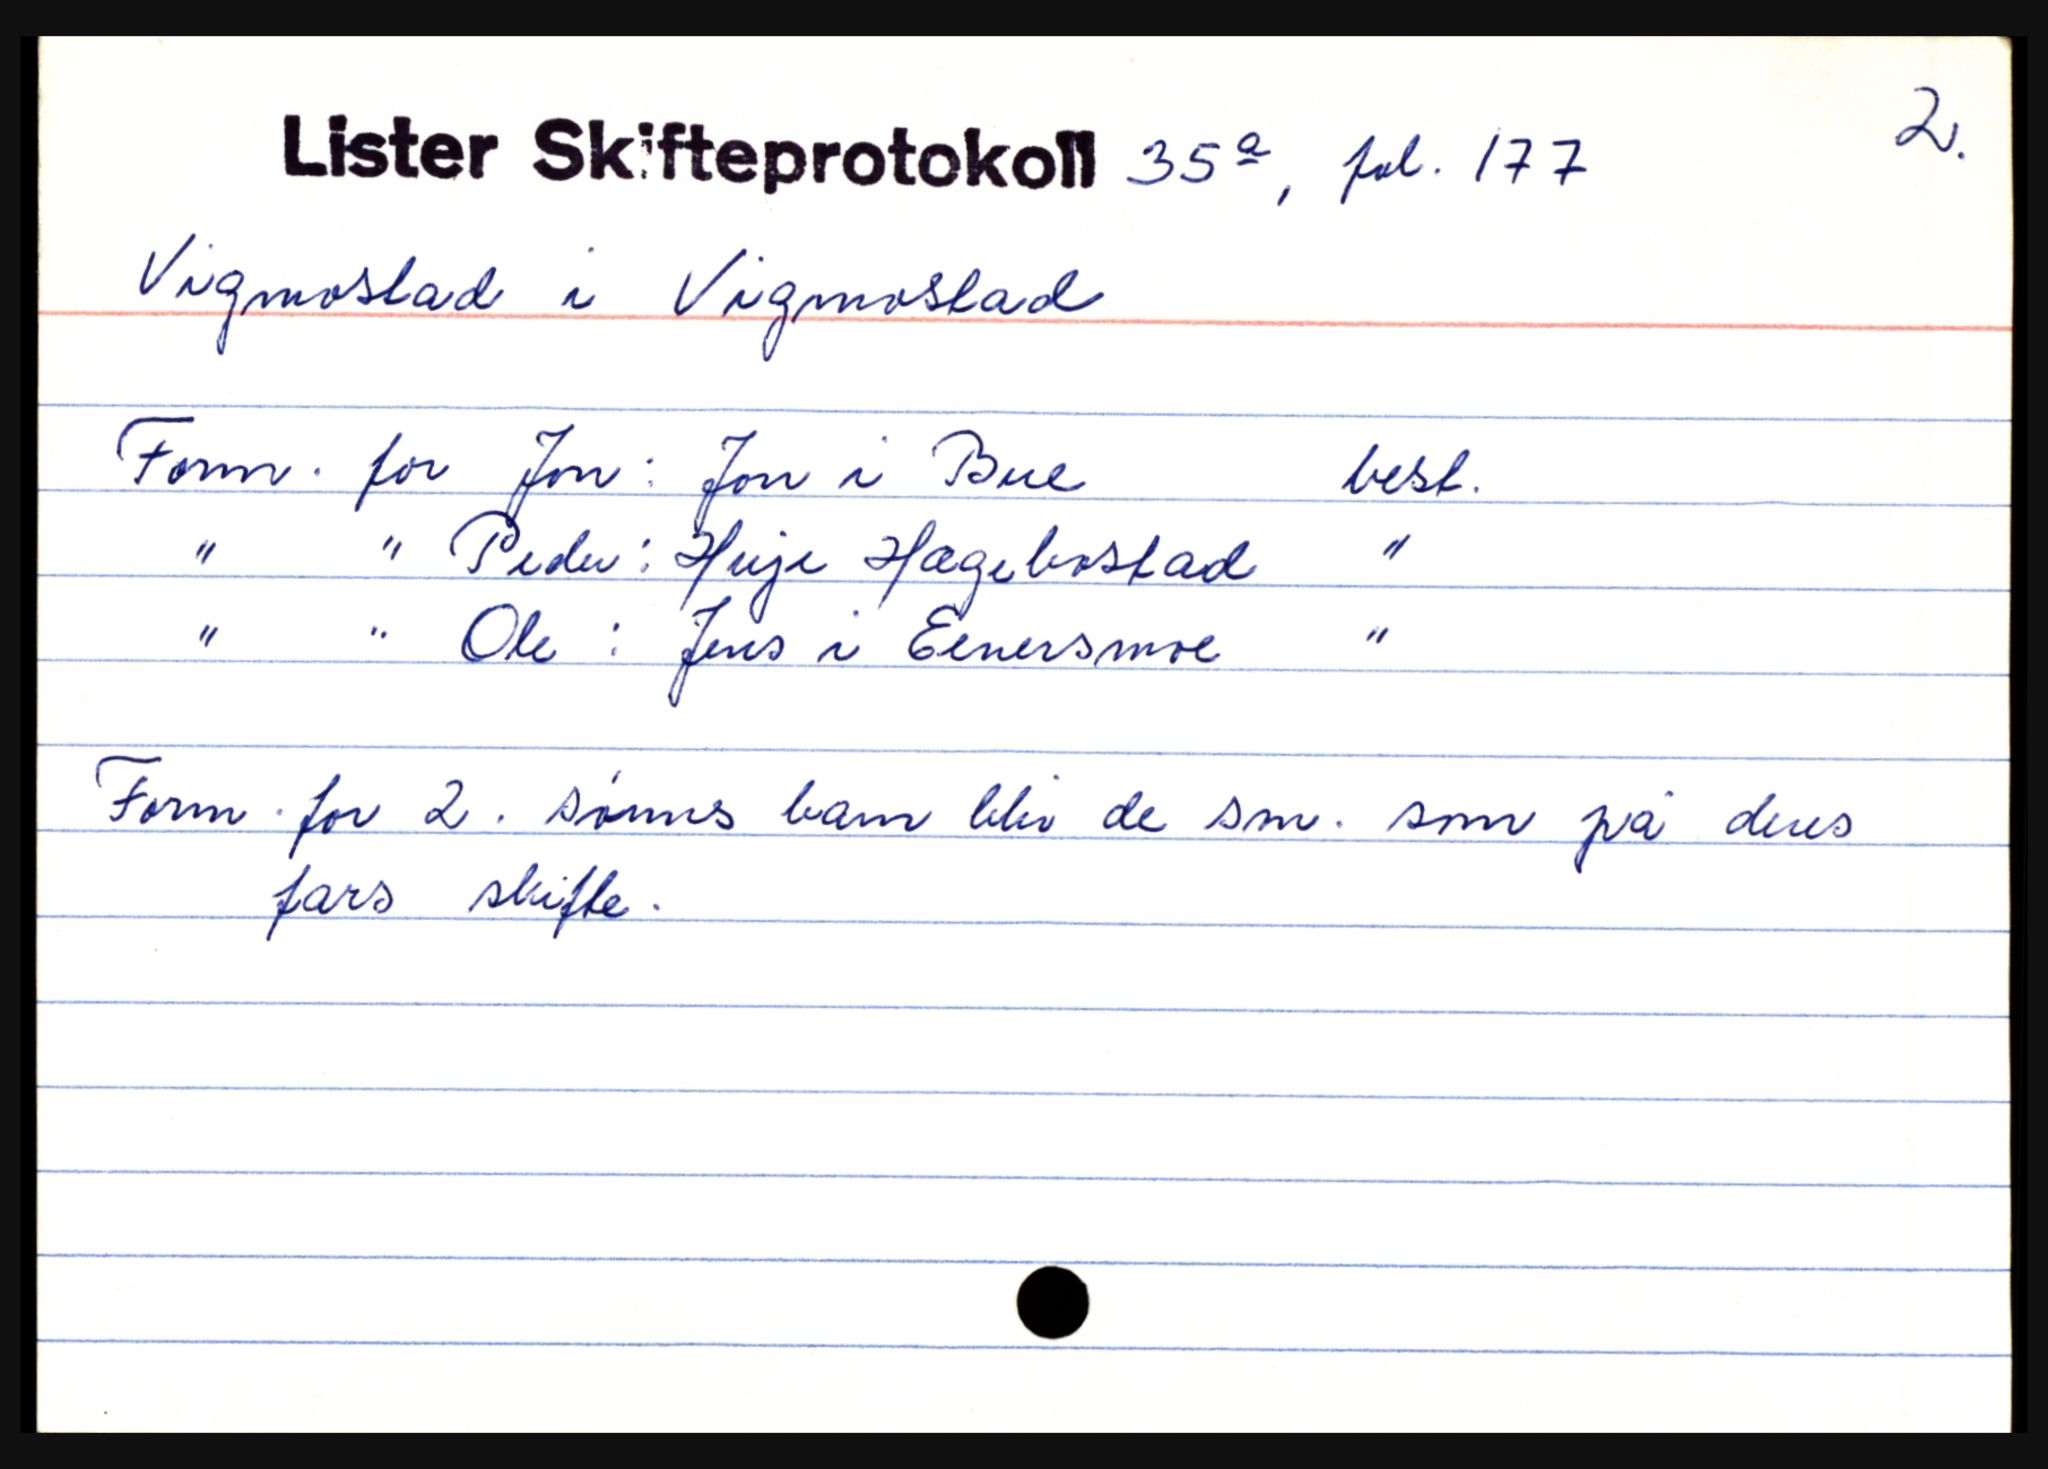 2.
Lister Skifteprotokoll 35ª, fol. 177
Vigmostad i Vigmostad
Form. for Jon: Jon i Bue best.
" " Peder: Huje Hægebostad "
" " Ole: Jens i Eenersmoe "
Form. for 2. sønns barn bliv de sm. som på deres
fars skifte.